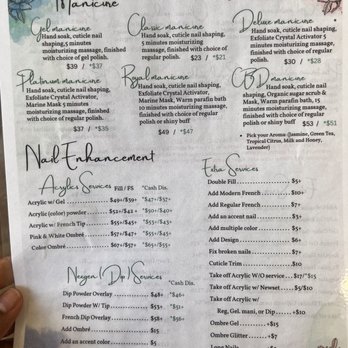 Manicure
Gel manicure
Hand soak, cuticle nail
shaping,5 minutes
moisturizing massage,
finished with choice of gel polish.
$39 / *$37
Classic manicure
Hand soak, cuticle nail shaping,
5 minutes moisturizing
massage, finished
with choice of regular polish.
$23 / *$21
Deluxe manicure
Hand soak, cuticle nail shaping,
Exfoliate Crystal Activator 5
minutes moisturizing massage,
finished with choice of regular
polish.
$30 / *$28
Platinum manicure
Hand soak, cuticle nail shaping,
Exfoliate Crystal Activator,
Marine Mask 5 minutes
moisturizing massage, finished
with choice of regular polish.
$37 / *$35
Royal manicure
Hand soak, cuticle nail shaping,
Exfoliate Crystal Activator,
Marine Mask, Warm parafin bath
10 minutes moisturizing massage,
finished with choice of regular
polish or shiny buff
$49 / *$47
CBD manicure
Hand soak, cuticle nail shaping,
Organic sugar scrub &
Mask, Warm parafin bath, 15
minutes moisturizing massage,
finished with choice of regular
polish or shiny buff $53 / *$51
• Pick your Aroma (Jasmine, Green Tea,
Tropical Citrus, Milk and Honey,
Lavender)
Nail Enhancement
Acrylics Services Fill / FS *Cash Dis.
Acrylic w/ Gel
Acrylic (color) powder
Acrylic w/ French Tip
Pink & White Ombré
Color Ombré
Nexgen (Dip) Services *Cash Dis.
Dip Powder Overlay $48+ *$46+
Dip Powder W/ Tip $53+ *$51+
French Dip Overlay $58+ *$56+
Add Ombré $15
Add an accent color $5
Extra Services
Double Fill $5+
Add Modern French $10+
Add Regular French $7+
Add an accent nail $3+
Add multiple color $5+
Add Design $6+
Fix broken nails $7+
Cuticle Trim $10
Take off Acrylic W/O service $17/*$15
Take off Acrylic w/ Newset $5/$10
Take off Acrylic w/
Reg, Gel, mani, or Dip $10
Ombre Gel $15
Ombre Glitter $7
Long Nails